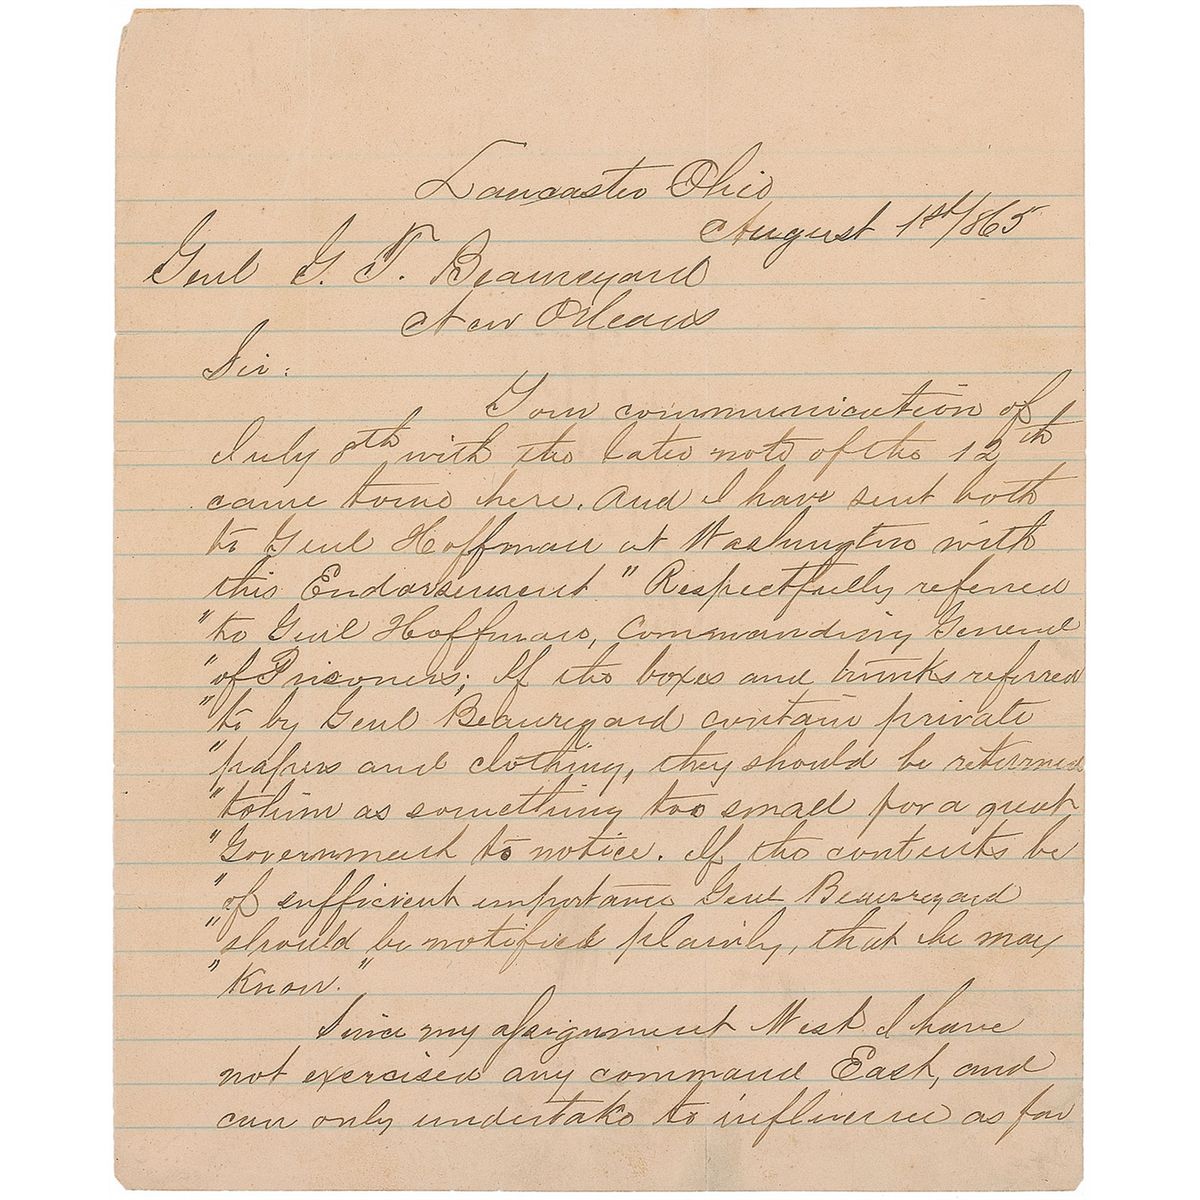 Lancaster Ohio
August 1st/865
Genl G. T. Beauregard
New Orleans
Sir:
Your communication of
July 8th with the later note of the 12th
came to me here. And I have sent both
to Genl Hoffman at Washington with
this Endorsement " Respectfully referred
" to Genl Hoffman, Commanding General
" of Prisoners; If the boxes and trunks referred
" to by Genl Beauregard contain private
" papers and clothing, they should be returned
" to him as something too small for a great
" Government to notice. If the contents be
" of sufficient importance Genl Beauregard
" should be notified plainly, that he may
" Know."
Since my assignment West I have
not exercised any command East, and
can only undertake to influence as far